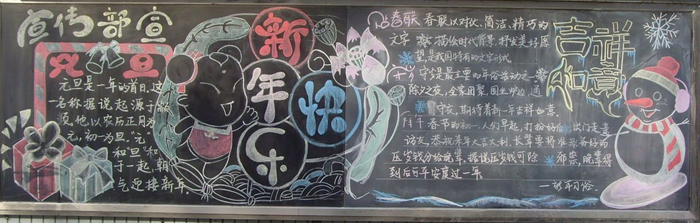 宣传部宣
元旦
元旦是一年的首日,这
一名称据说起源于
顼,他以农历正月为
元,初一为旦."元
和"旦"
于一起,
气迎接新年.
新
年
快
乐
春联 春联以对仗、简洁、精巧的
文字 描绘时代背景,抒发美好愿
望,是我国特有的文学形式
守岁是最主要的年俗活动之一
除夕之夜,全家团聚,围坐炉边,通
宵守夜,期待着新一年吉祥如意.
拜年 春节的初一,人们早起,打扮
出门走亲
访友,恭祝来年大吉大利,长辈要将
准备好的
压岁钱分给晚辈,据说压岁钱可
邪祟,晚辈得
到后可平安度过一年
吉祥
如意